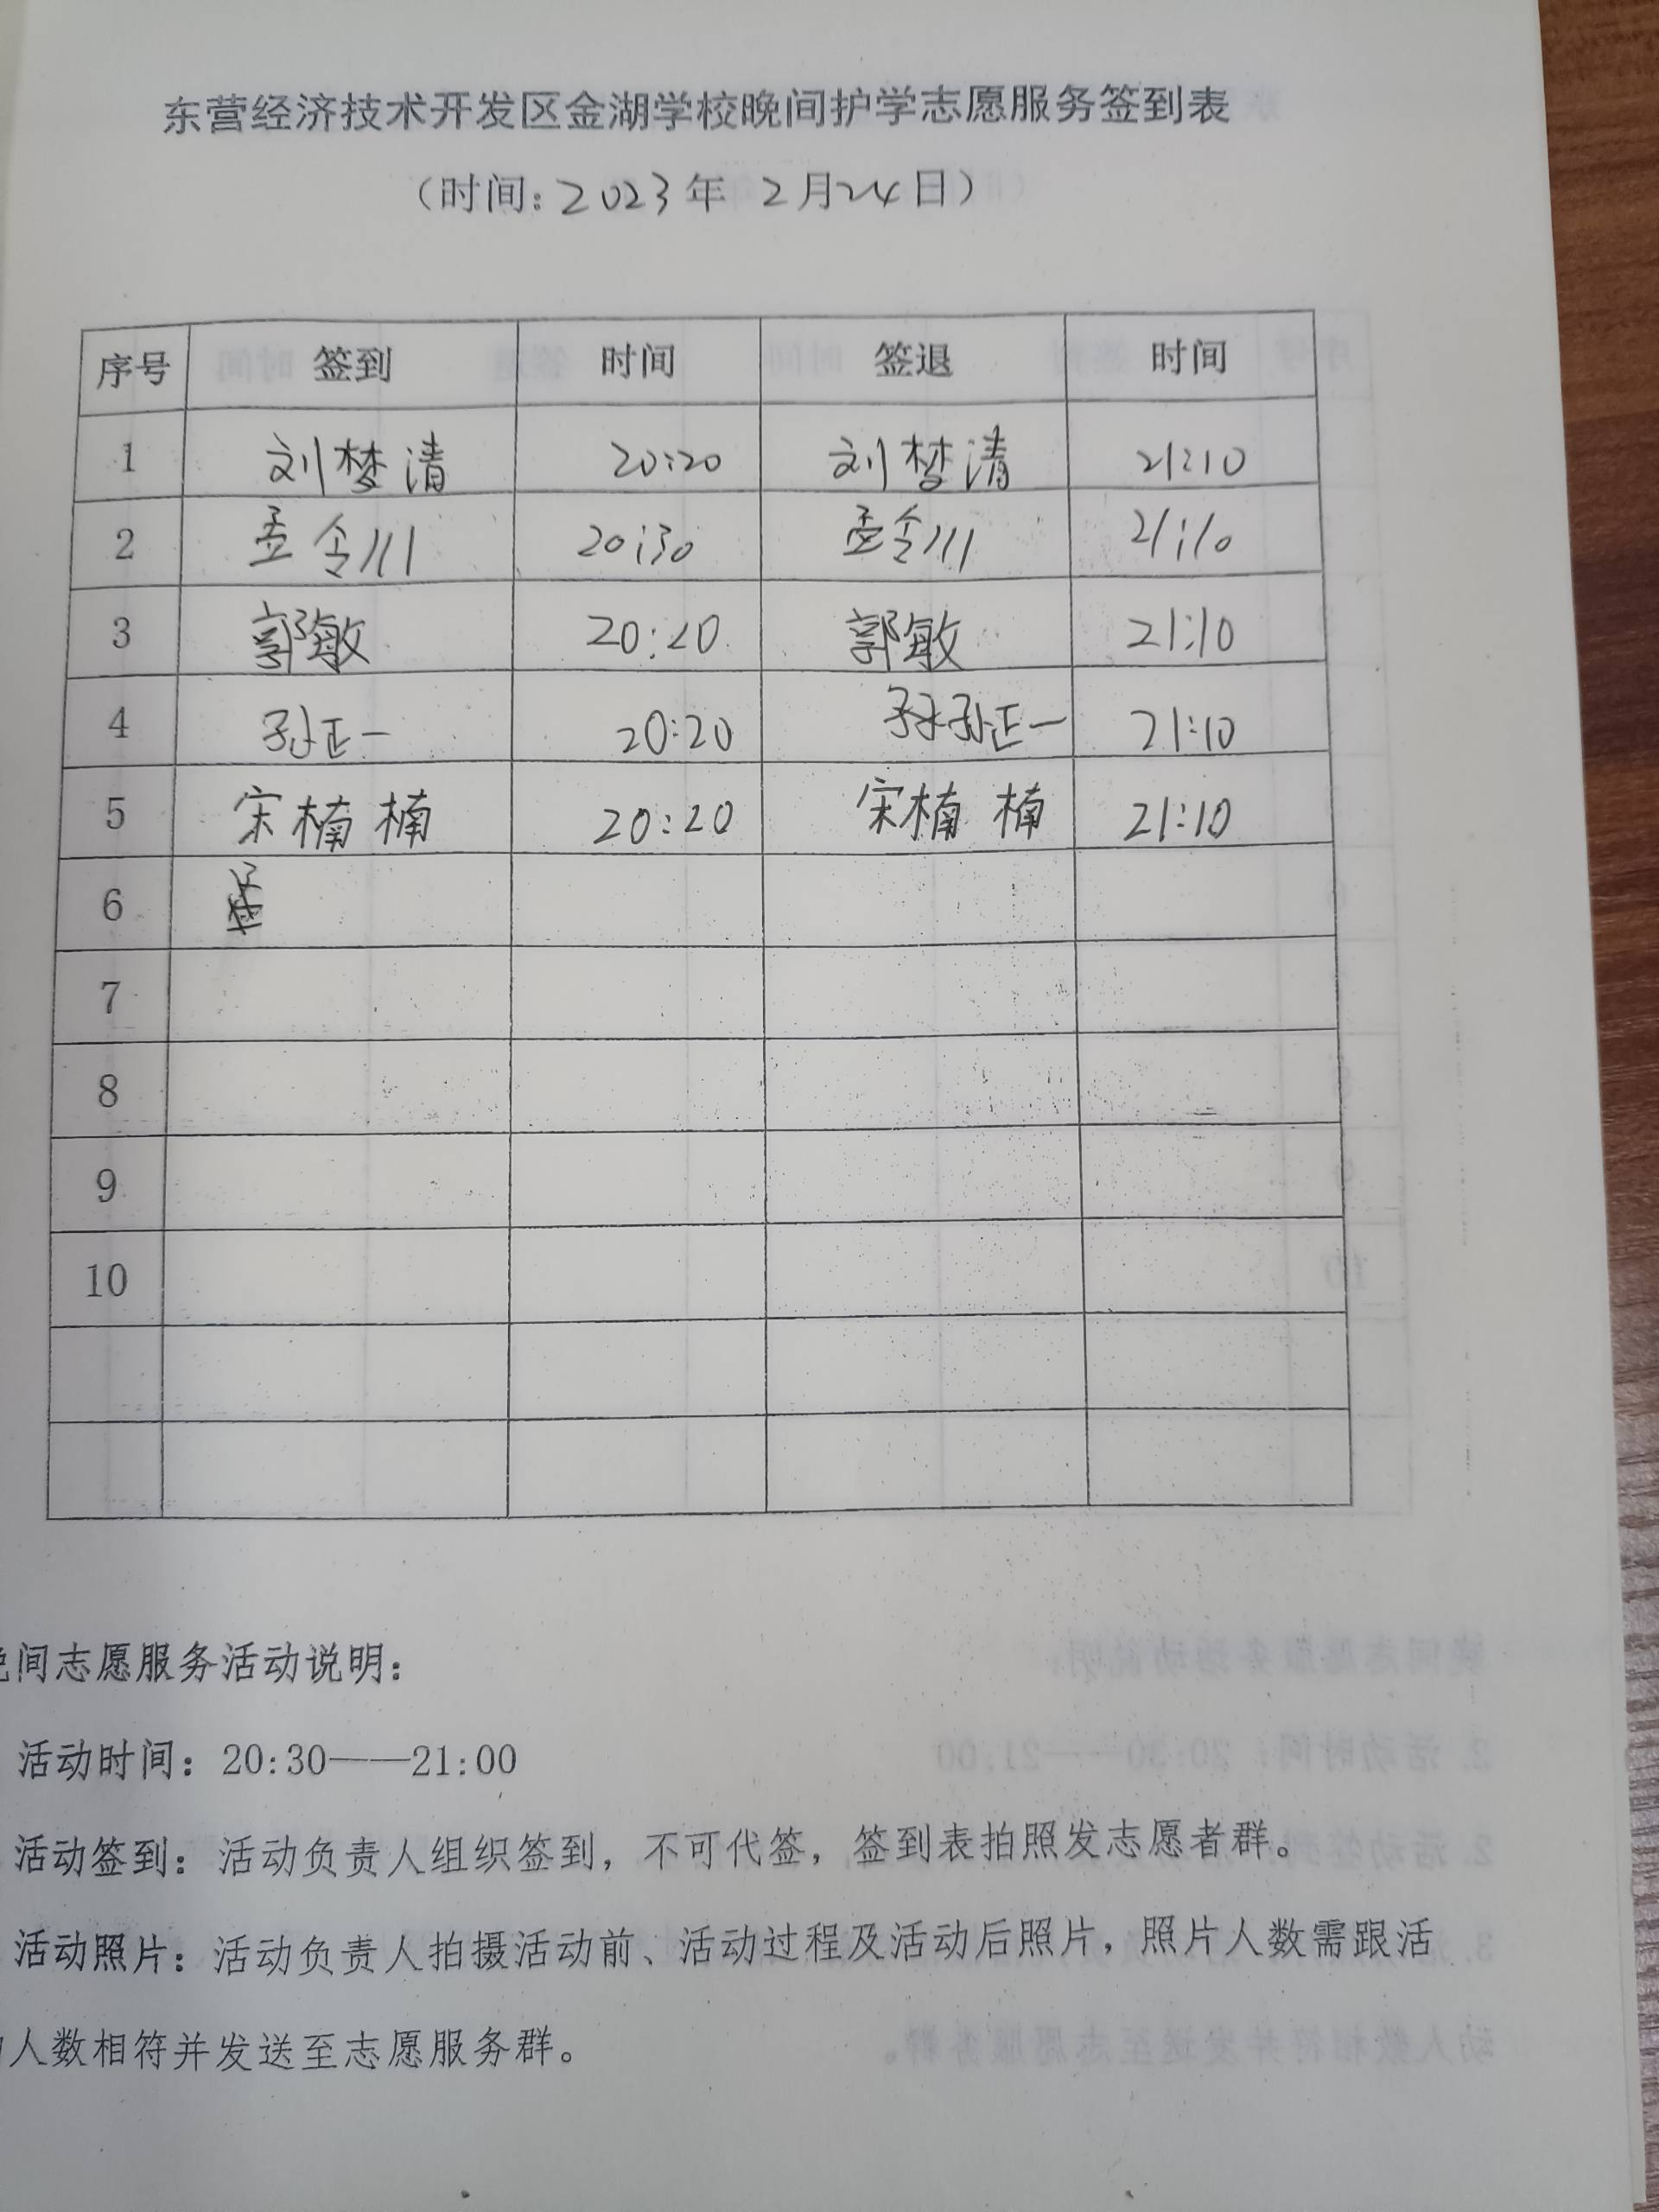 东营经济技术开发区金湖学校晚间护学志愿服务签到表
（时间：2023年 2月24日）
序号 签到 时间 签退 时间
1 刘梦清 20:20 刘梦清 21:10
2 孟令川 20:30 孟令川 21:10
3 郭敏 20:20 郭敏 21:10
4 孙正一 20:20 孙正一 21:10
5 宋楠楠 20:20 宋楠楠 21:10
6
7
8
9
10
晚间志愿服务活动说明：
活动时间：20:30——21:00
活动签到：活动负责人组织签到，不可代签，签到表拍照发志愿者群。
活动照片：活动负责人拍摄活动前、活动过程及活动后照片，照片人数需跟活
动人数相符并发送至志愿服务群。